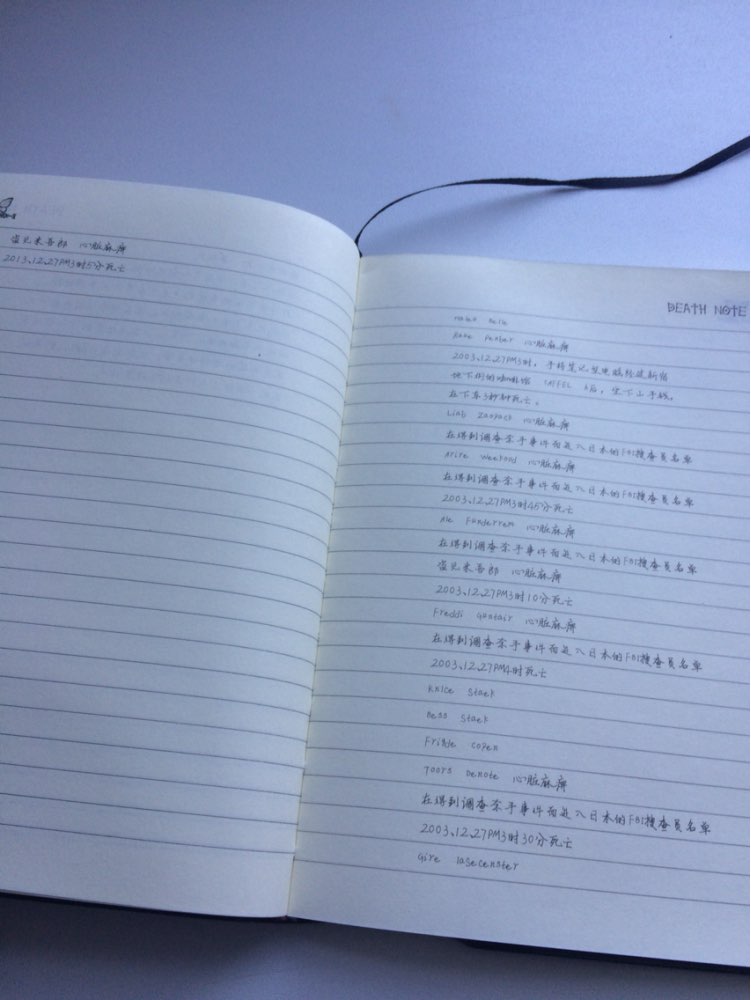 心脏麻痹
2013、12、27PM3时5分死亡
DEATH NOTE
心脏麻痹
2003、12、27PM3时,手持笔记型电脑经过新宿
地下街的咖啡馆 后,坐下山手线。
在下车3秒钟死亡。
Liat Zaopack 心脏麻痹
在得到调查杀手事件而进入日本的FBI搜查员名单
Arire Weekond 心脏麻痹
在得到调查杀手事件而进入日本的FBI搜查员名单
2003、12、27PM3时45分死亡
Ale Fanderrem 心脏麻痹
在得到调查杀手事件而进入日本的FBI搜查员名单
心脏麻痹
2003、12、27PM3时10分死亡
Freddi Guntair 心脏麻痹
在得到调查杀手事件而进入日本的FBI搜查员名单
2003、12、27PM4时死亡
Knice Staek
Bess Staek
Frinde Copen
Toors Denote 心脏麻痹
在得到调查杀手事件而进入日本的FBI搜查员名单
2003、12、27PM3时30分死亡
Gire Iasecenster